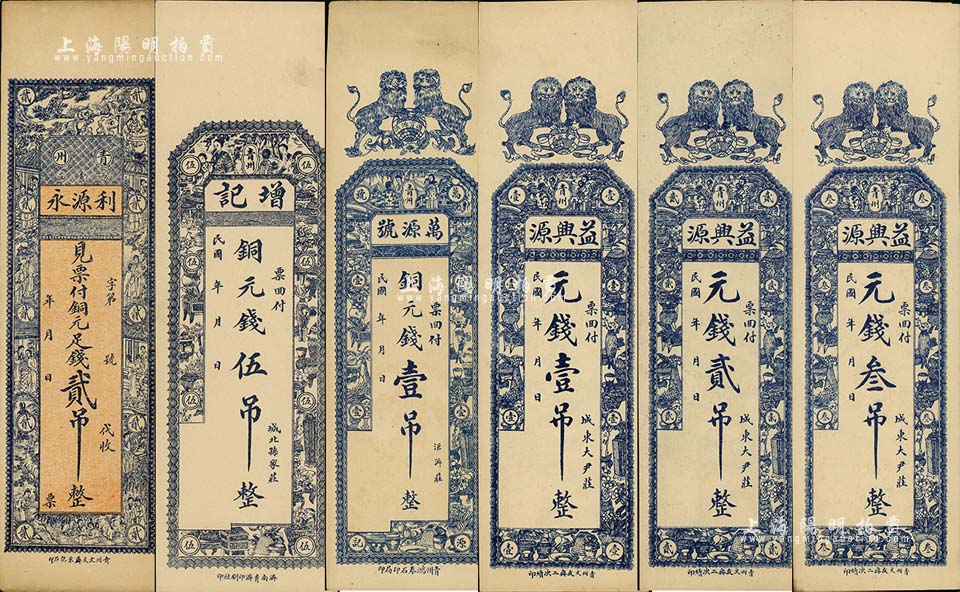 上海陽明拍賣
www.yangmingauction.com
貳 貳
青州
利源永
字第 號
見票付銅元足錢貳吊整
年 月 日
代收
票
貳 貳
伍 青州 伍
增記
票回付
銅元錢伍吊整
民國 年 月 日
城北孫家莊
伍 伍
濟南青濟印刷社印
萬 青州
萬源號
票回付
銅元錢壹吊整
民國 年 月 日
源 記
壹 青州 壹
益興源
票回付
元錢壹吊整
民國 年 月 日
城東大尹莊
壹 壹
青州文友齋二次續印
貳 青州 貳
益興源
票回付
元錢貳吊整
民國 年 月 日
城東大尹莊
貳 貳
青州文友齋二次續印
叁 青州 叁
益興源
票回付
元錢叁吊整
民國 年 月 日
城東大尹莊
叁 叁
青州文友齋二次續印
上海陽明拍賣
www.yangmingauction.com
上海陽明拍賣
www.yangmingauction.com